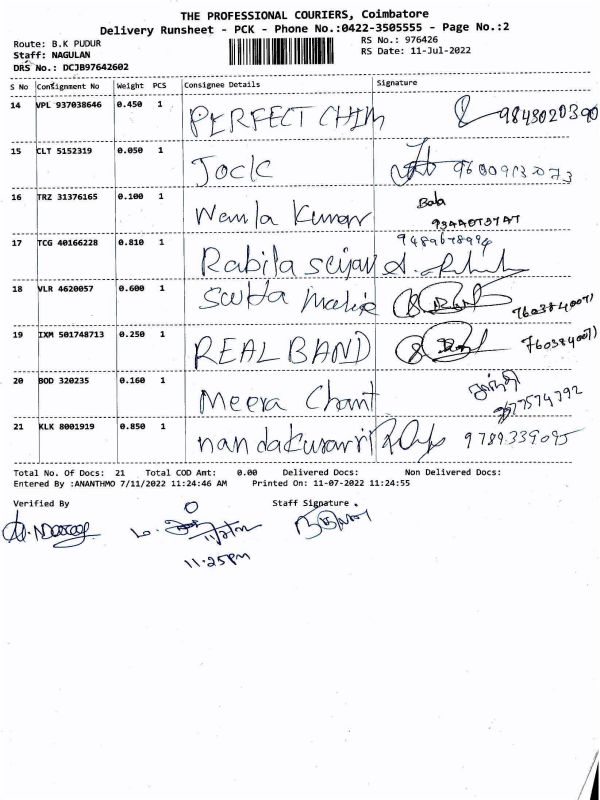 THE PROFESSIONAL COURIERS, Coimbatore
Delivery Runsheet - PCK - Phone No.:0422-3505555 - Page No.:2
Route: B.K PUDUR
RS No.: 976426
Staff: NAGULAN
RS Date: 11-Jul-2022
DRS No.: DCJB97642602
S No Consignment No Weight PCS Consignee Details Signature
14 VPL 937038646 0.450 1 PERFECT CHIM 9843020390
15 CLT 5152319 0.050 1 Jock
16 TRZ 31376165 0.100 1 Kumar Bala
17 TCG 40166228 0.810 1 Rabila
18 VLR 4620057 0.600 1 7603840071
19 IXM 501748713 0.250 1 REAL BAND 7603840071
20 BOD 320235 0.160 1 Meera Chant
21 KLK 8001919 0.850 1 9789339095
Total No. Of Docs: 21 Total COD Amt: 0.00 Delivered Docs: Non Delivered Docs:
Entered By :ANANTHMO 7/11/2022 11:24:46 AM Printed On: 11-07-2022 11:24:55
Verified By Staff Signature
11.25pm